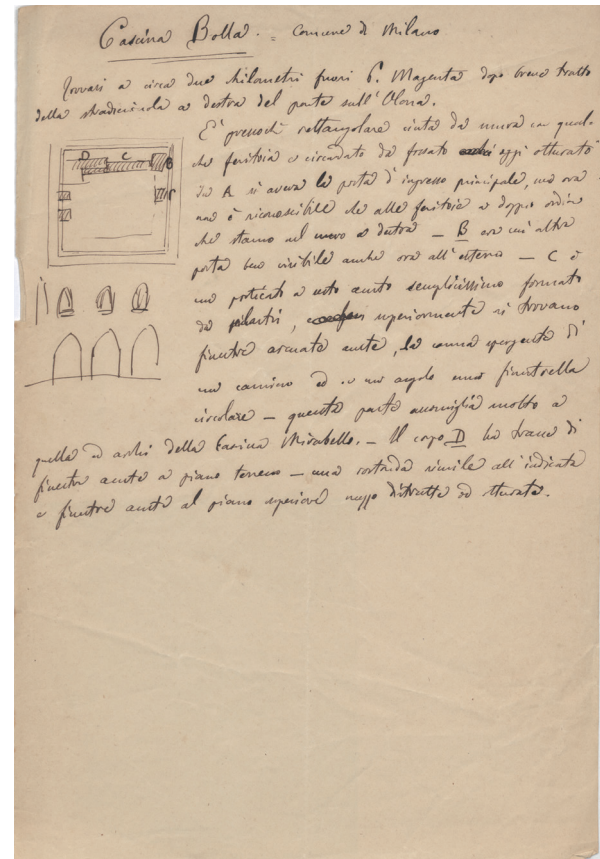 Cascina Bolla. = Comune di Milano
Trovasi a circa due kilometri fuori P. Magenta dopo breve tratto
della stradicciuola a destra del ponte sull'Olona.
E' pressochè rettangolare cinta da mura con qual-
che feritoia e circondata da fossato oggi otturato
In A si aveva la porta d'ingresso principale, ma ora
non è riconoscibile che alle feritoie a doppio ordine
che stanno nel muro a destra – B era un'altra
porta ben visibile anche ora all'esterno – C è
un porticato a sesto acuto semplicissimo formato
da pilastri, superiormente si trovano
finestre arcuate acute, la canna sporgente di
un camino ed in un angolo una finestrella
circolare – questa parte assomiglia molto a
quella ad archi della Cascina Mirabello. – Il corpo D ha tracce di
finestre acute a piano terreno – una cortina simile all'indicata
e finestre acute al piano superiore mezzo distrutte od otturate.
D C B